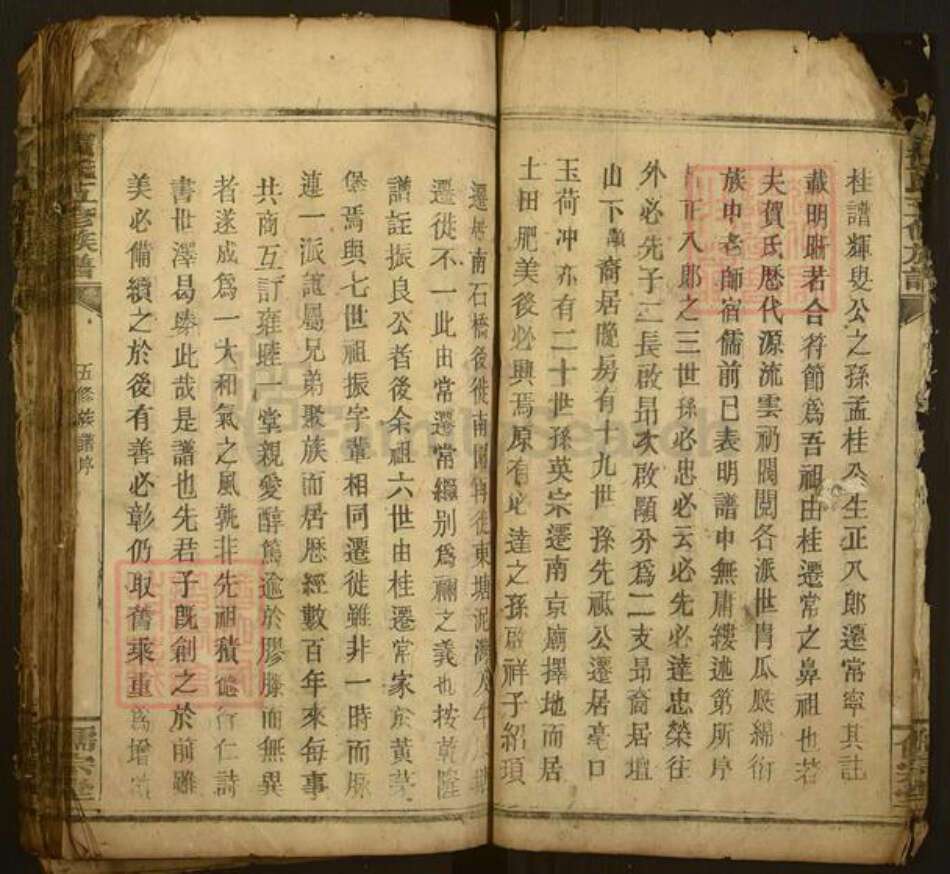 桂譜輝叟公之孫孟桂公生正八郎遷常寧其註
載明晰若合符節為吾祖由桂遷常之鼻祖也若
夫賀氏歷代源流雲礽閥閱各派世胄瓜瓞綿衍
族中老師宿儒前已表明譜中無庸縷述第所序
正八郎之三世孫必忠必云必先必達忠榮往
外必先子二長啟昂次啟顯分為二支昂裔居壇
山下顯裔居曉房有十九世孫先祗公遷居毫口
玉荷冲亦有二十世孫英宗遷南京廟擇地而居
土田肥美後必興焉原有必達之孫啟祥子紹頊
遷居南石橋後徙南園轉徙東塘泥灣
遷徙不一此由常遷常繼别為禰之義也按乾隆
譜註振良公者後余祖六世由桂遷常家於黃茅
堡焉與七世祖振字輩相同遷徙雖非一時而脉
連一派誼屬兄弟聚族而居歷經數百年來每事
共商互訂雍睦一堂親愛醇篤逾於膠膝而無異
者遂成為一大和氣之風孰非先祖積德行仁詩
書世澤曷臻此哉是譜也先君子既創之於前雖
美必備續之於後有善必彰仍取舊乘重為增
五修族譜序
五修族譜